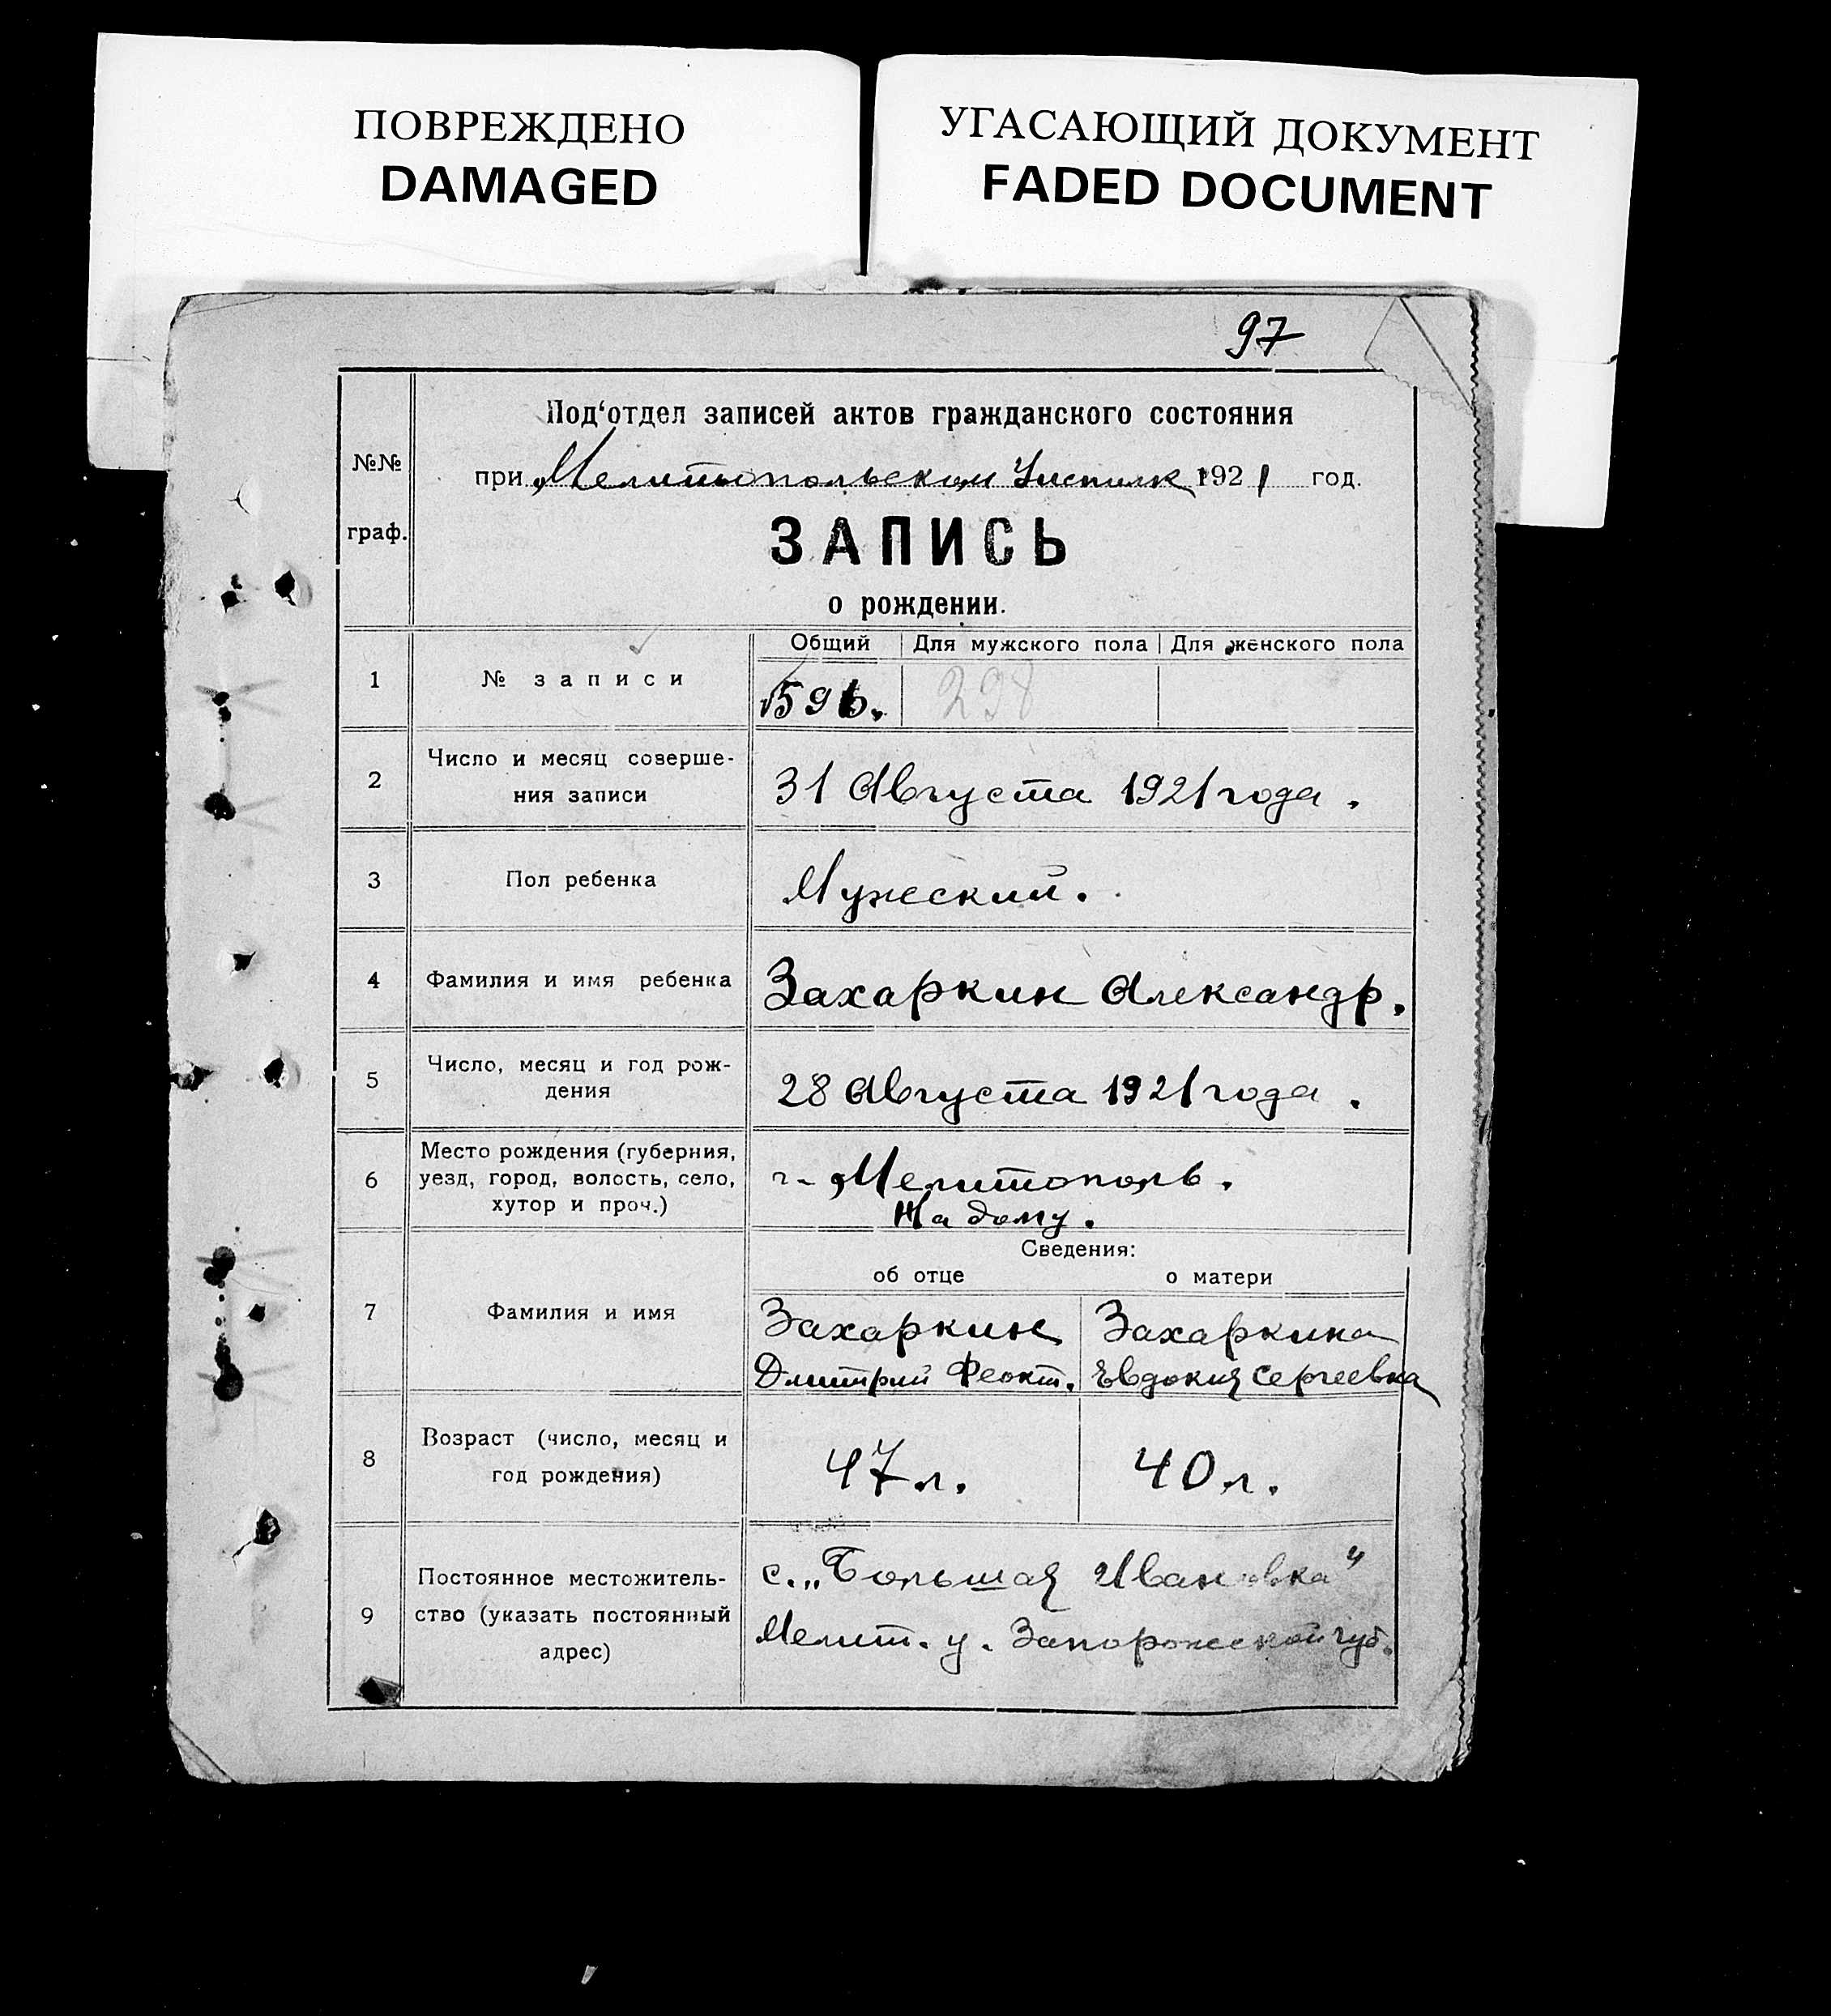 ПОВРЕЖДЕНО
DAMAGED
УГАСАЮЩИЙ ДОКУМЕНТ
FADED DOCUMENT
97
№№
граф.
Под‘отдел записей актов гражданского состояния
при Мелитопольском 1921 год.
ЗАПИСЬ
о рождении.
Общий Для мужского пола Для женского пола
1 № записи 596. 298
2 Число и месяц соверше-
ния записи
31 Августа 1921 года.
3 Пол ребенка Мужеский.
4 Фамилия и имя ребенка Захаркин Александр.
5 Число, месяц и год рож-
дения
28 Августа 1921 года.
6 Место рождения (губерния,
уезд, город, волость, село,
хутор и проч.)
г. Мелитополь.
На дому.
Сведения:
об отце о матери
7 Фамилия и имя
Захаркин Захаркина
Дмитрий Феокт. Евдокия Сергеевна
8 Возраст (число, месяц и
год рождения)
47 л. 40 л.
9 Постоянное местожитель-
ство (указать постоянный
адрес)
с. „Большая Ивановка“
Мелит. у. Запорожской губ.